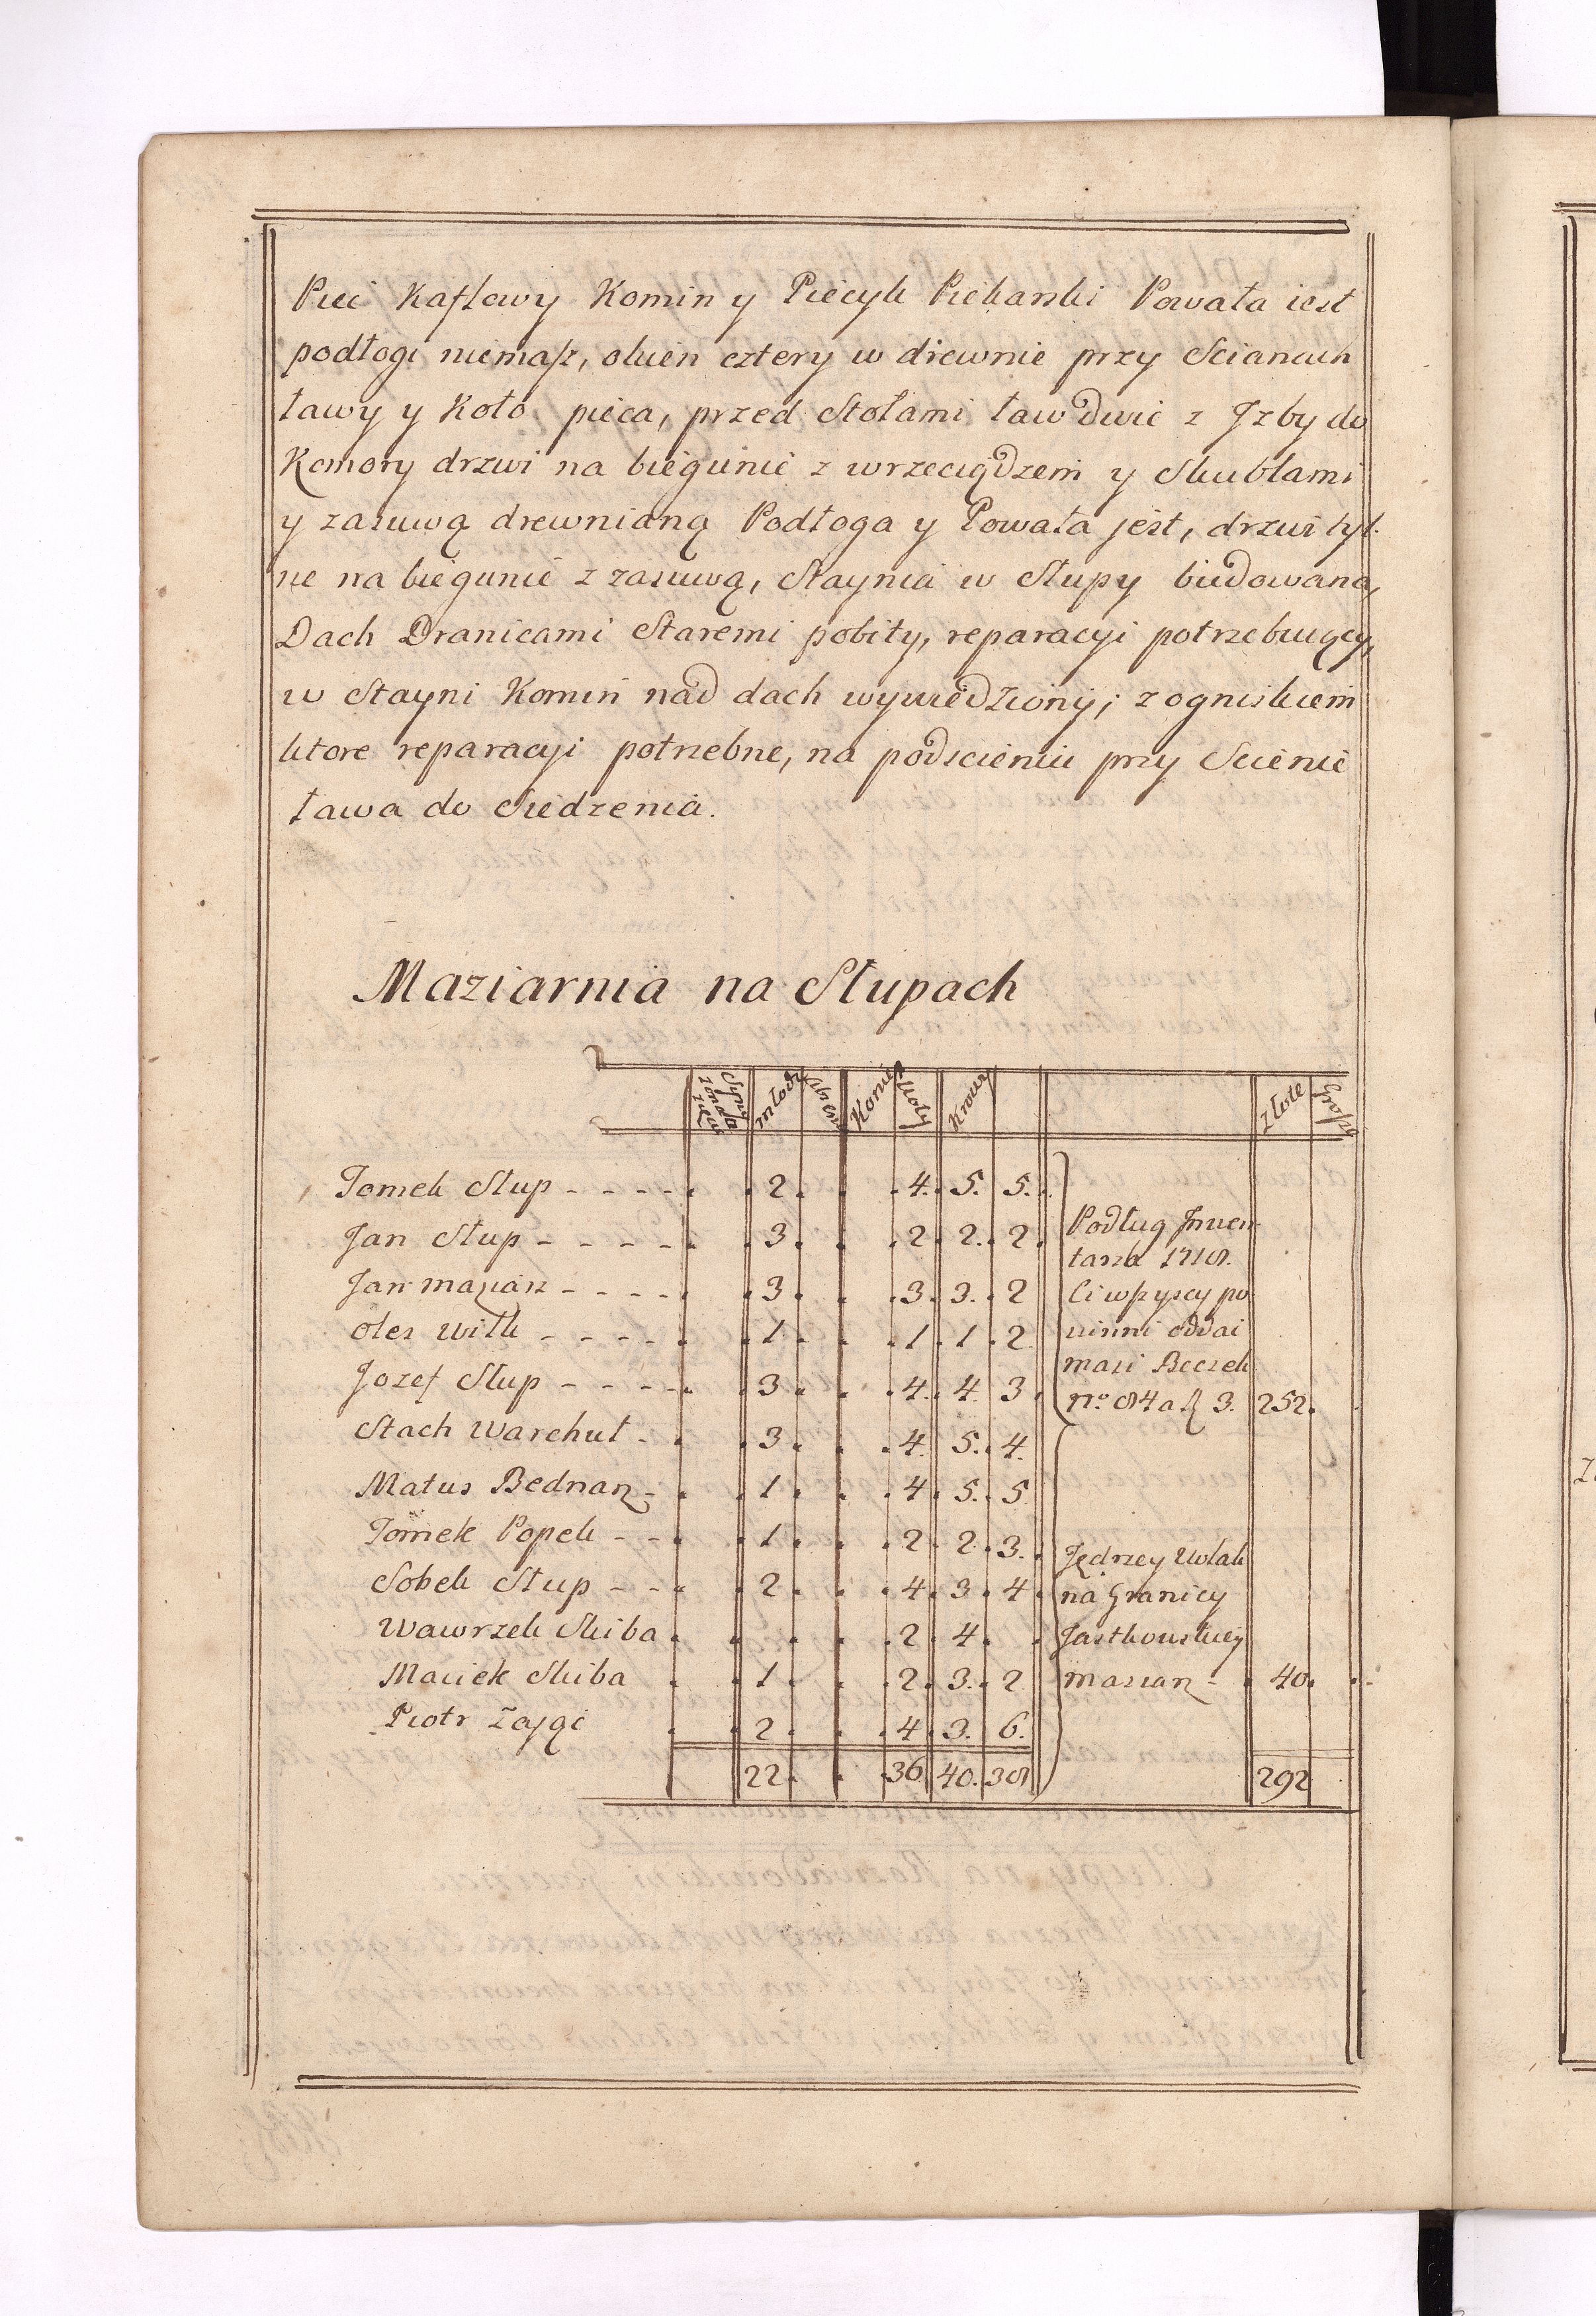 Piec Kaflowy Komin y Piecyk Piekarski Powała iest
podłogi niemasz, okien cztery w drewnie przy Scianach
ławy y Koło pieca, przed Stołami ław dwie z Jzby do
Komory drzwi na biegunie z wrzeciądzem y Skublami
y zasuwą drewnianą Podłoga y Powała jest, drzwi tyl-
ne na biegunie z zasuwą, Staynia w Słupy budowana,
Dach Dranicami Staremi pobity, reparacyi potrzebuiący,
w Stayni Komin nad dach wywiedziony; z ogniskiem
ktore reparacyi potrzebne, na podscieniu przy Scienie
ława do Siedzenia.
Maziarnia na Słupach
Synowie młodzi Konie Woły Krowy Złote Groszy
Tomek Słup - - - - . 2 . . . 4. 5. 5.
Jan Słup - - - - - . 3 . . . 2. 2. 2.
Podług Jnwen-
tarza 1718.
Jan maziarz - - - - . 3 . . . 3. 3. 2
Ci wszyscy po
Oles Wilk - - - - . 1 . . . 1 . 1 . 2
winni oddai
Jozef Słup - - - - . 3 . . . 4. 4. 3.
mazi Beczek
No. 84 a fl 3. 252.
Stach Warchuł - . 3 . . . 4. 5. 4.
Matus Bednarz - . 1 . . . 4. 5. 5
Tomek Popek - - . 1 . . . 2. 2. 3.
Jędrzey Wlak
Sobek Słup - - . 2 . . . 4. 3. 4.
na Granicy
Wawrzek Skiba . . . . 2. 4.
Jastkowskiey
Maciek Skiba . 1 . . . 2. 3. 2
maziarz - . 40.
Piotr Zając . 2 . . . 4. 3. 6.
22. . 36 40. 38 292